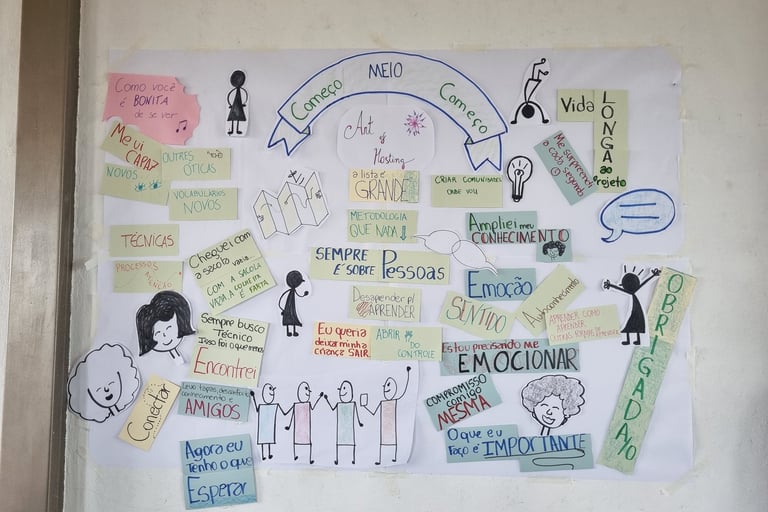 Começo
MEIO
Começo
Art
of
Hosting
COMO VOCÊ
É BONITA
de se ver
Me vi
CAPAZ
NOVOS
OUTRAS
ÓTICAS
VOCABULÁRIOS
NOVOS
TÉCNICAS
PROCESSOS
Cheguei com
a sacola vazia
COM A SACOLA
VAZIA A COLHEITA
É FARTA
Sempre busco
TÉCNICO
Isso foi o que menos
Encontrei
Conectar
conhecimento e
AMIGOS
Agora eu
Tenho o que
Esperar
a lista é
GRANDE
CRIAR COMUNIDADES
ONDE VOU
METODOLOGIA
QUE NADA
Ampliei meu
CONHECIMENTO
SEMPRE
É SOBRE Pessoas
Desaprender p/
APRENDER
Emoção
SENTIDO
Autoconhecimento
APRENDER COMO
APRENDER
OUTRAS FORMAS DE APRENDER
Eu queria
deixar minha
criança SAIR
ABRIR
DO
CONTROLE
Estou precisando me
EMOCIONAR
COMPROMISSO
comigo
MESMA
O que eu
Faço é IMPORTANTE
Vida
LONGA ao
Projeto
Me surpreendi
a cada segundo
OBRIGADA/O